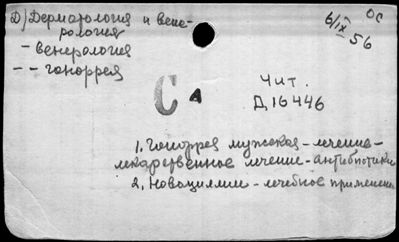 Д) Дерматология и вене-
рология
ос
6/IX 56
- венерология
- - гоноррея
СА
Чит.
Д16446
1. Гоноррея мужская - лечение -
лекарственное лечение - антибиотики
2. Новоциллин - лечебное применени